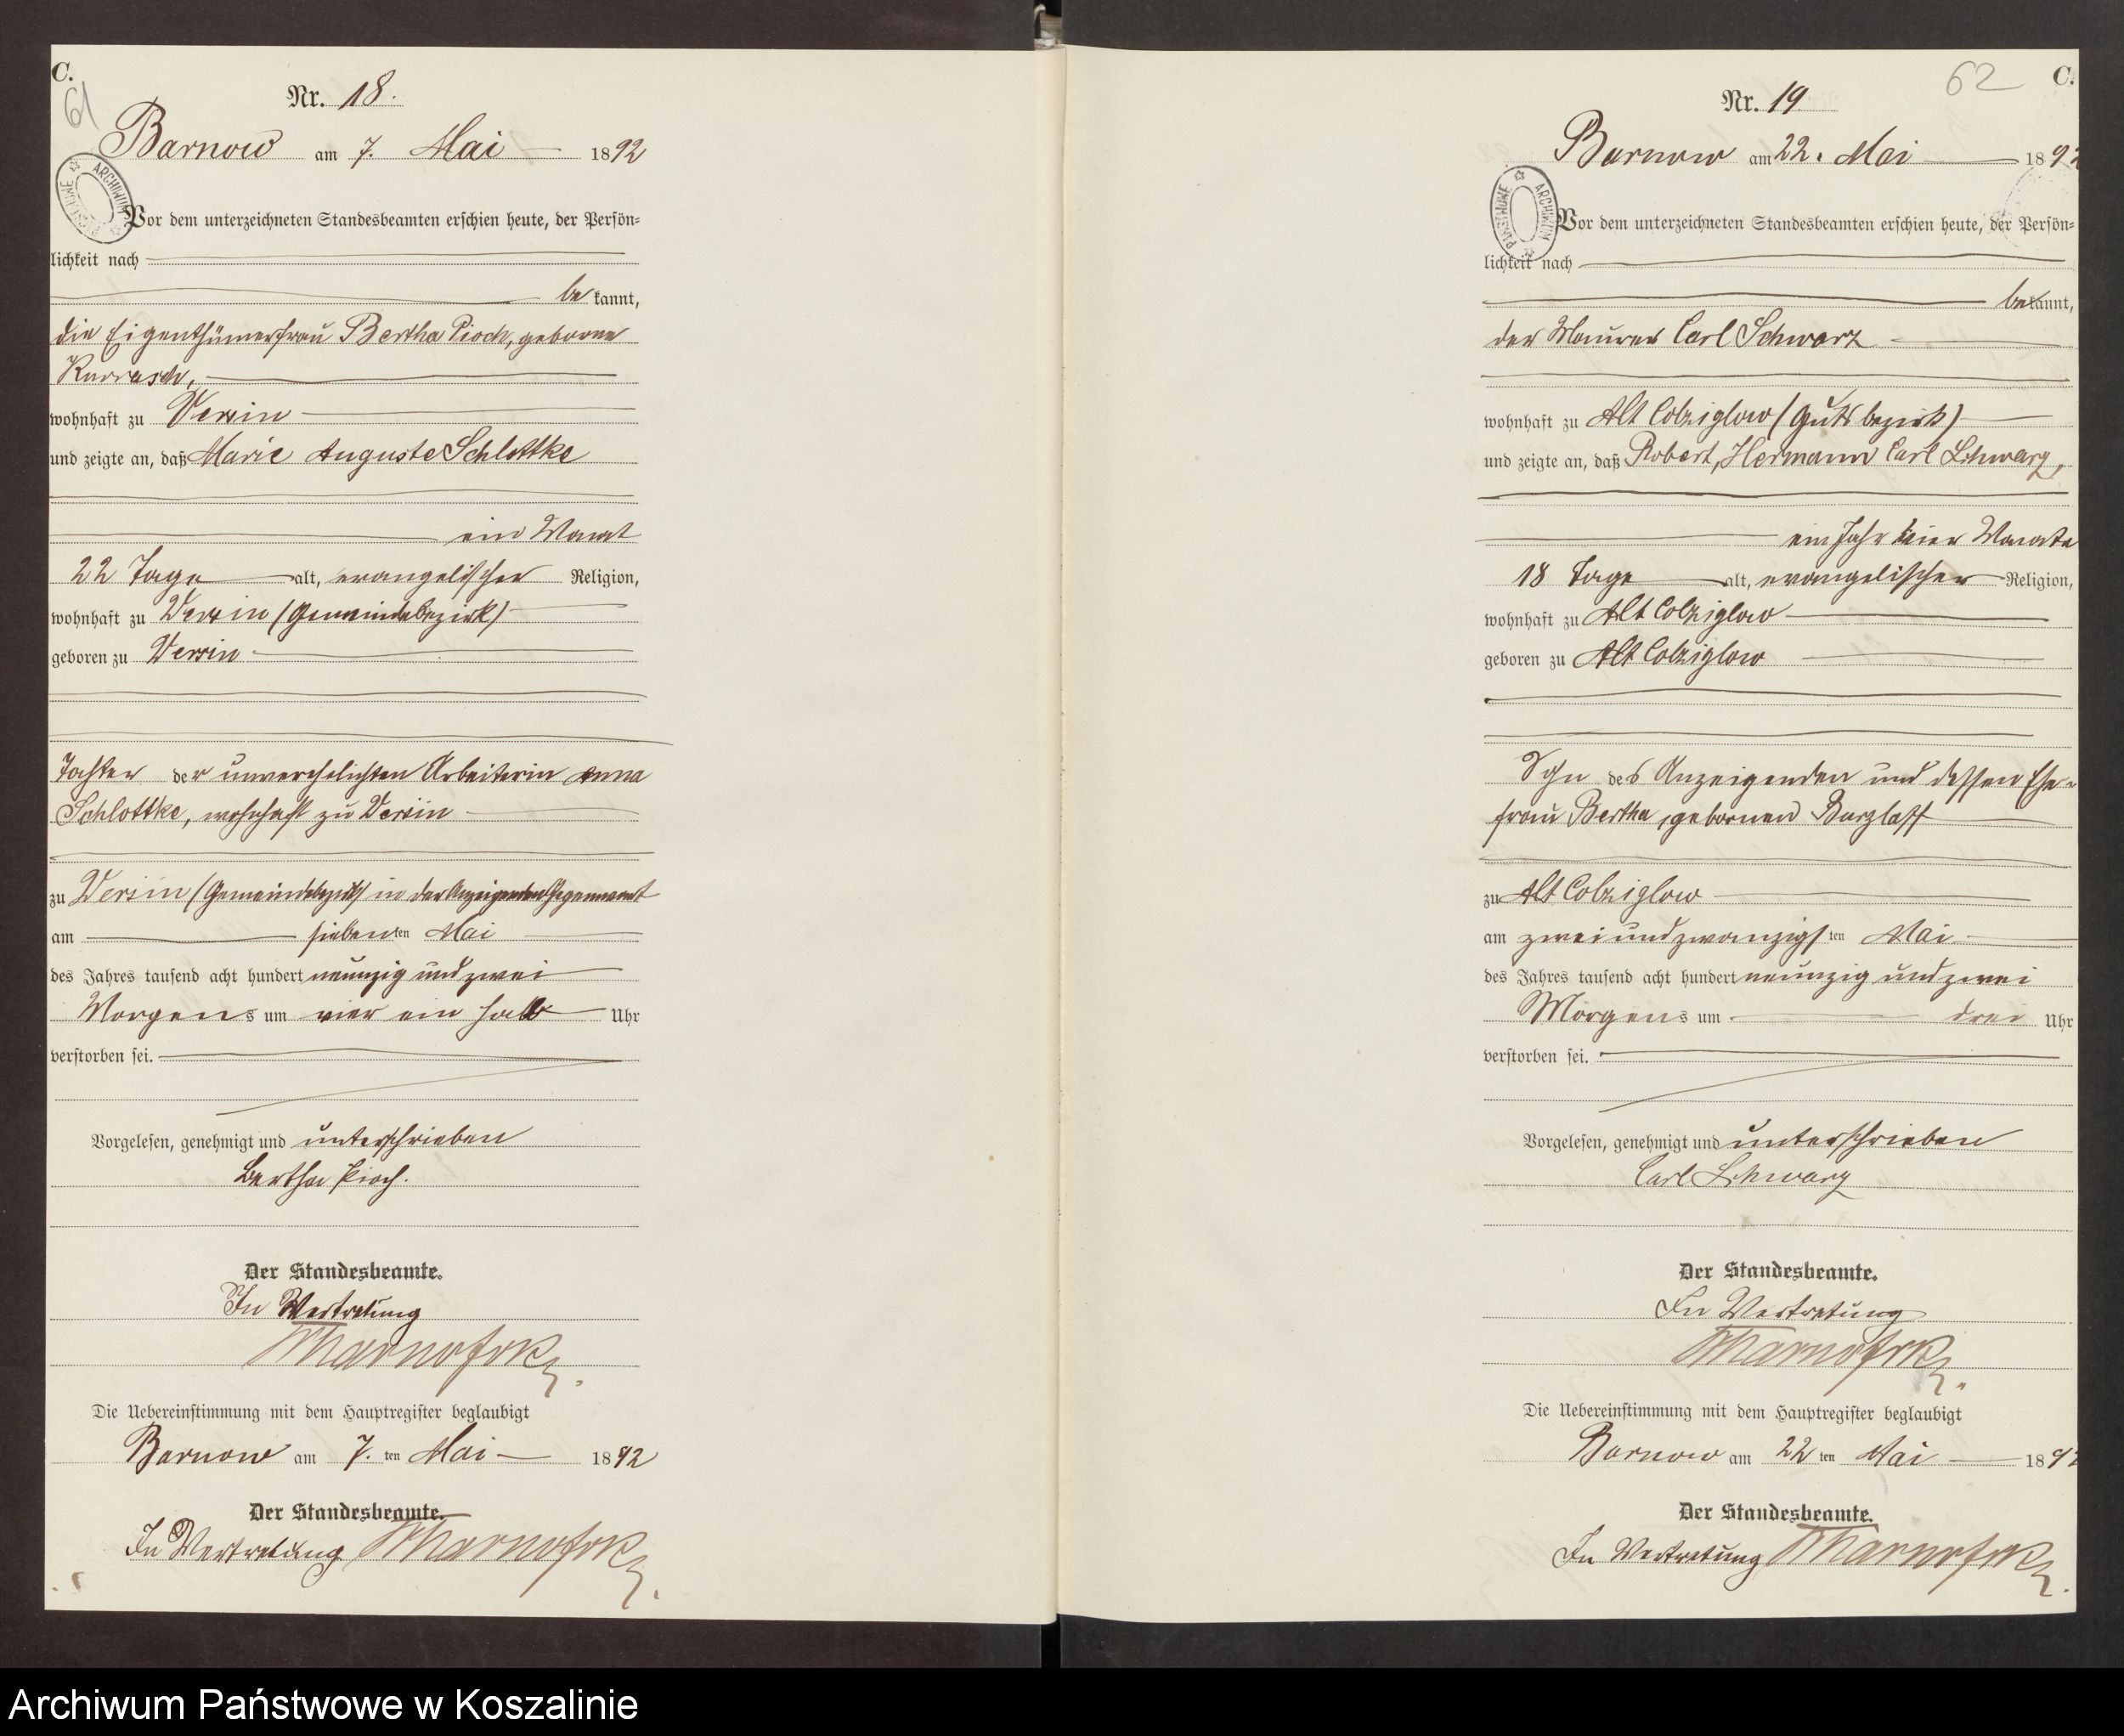 C.
61
Nr. 18.
Barnow am 7. Mai 1892
ARCHIWUM PAŃSTWOWE
Vor dem unterzeichneten Standesbeamten erschien heute, der Persön=
lichkeit nach
be kannt,
die Eigenthümerfrau Bertha Pioch, geborne
Kurrasch,
wohnhaft zu Versin
und zeigte an, daß Marie Auguste Schlottke
ein Monat
22 Tage alt, evangelischer Religion,
wohnhaft zu Versin (Gemeindebezirk)
geboren zu Versin
Tochter der unverehelichten Arbeiterin Anna
Schlottke, wohnhaft zu Versin
zu Versin (Gemeindebezirk) in der Anzeigenden Gegenwart
am siebenten Mai
des Jahres tausend acht hundert neunzig und zwei
Morgens um vier ein halb Uhr
verstorben sei.
Vorgelesen, genehmigt und unterschrieben
Bertha Pioch.
Der Standesbeamte.
In Vertretung
Die Uebereinstimmung mit dem Hauptregister beglaubigt
Barnow am 7. ten Mai 1892
Der Standesbeamte.
In Vertretung
62
C.
Nr. 19
Barnow am 22. Mai 189
ARCHIWUM PAŃSTWOWE
Vor dem unterzeichneten Standesbeamten erschien heute, der Persön=
lichkeit nach
bekannt,
der Maurer Carl Schwarz
wohnhaft zu Alt Colziglow (Gutsbezirk)
und zeigte an, daß Robert, Hermann Carl Schwarz,
ein Jahr vier Monate
18 Tage alt, evangelischer Religion,
wohnhaft zu Alt Colziglow
geboren zu Alt Colziglow
Sohn des Anzeigenden und dessen Ehe=
frau Bertha, gebornen Burzlaff
zu Alt Colziglow
am zwei und zwanzigsten Mai
des Jahres tausend acht hundert neunzig und zwei
Morgens um drei Uhr
verstorben sei.
Vorgelesen, genehmigt und unterschrieben
Carl Schwarz
Der Standesbeamte.
In Vertretung
Die Uebereinstimmung mit dem Hauptregister beglaubigt
Barnow am 22 ten Mai 189
Der Standesbeamte.
In Vertretung
Archiwum Państwowe w Koszalinie